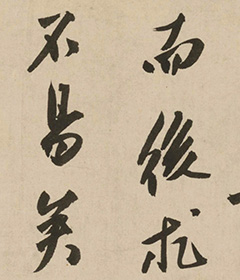 而後求
不易矣